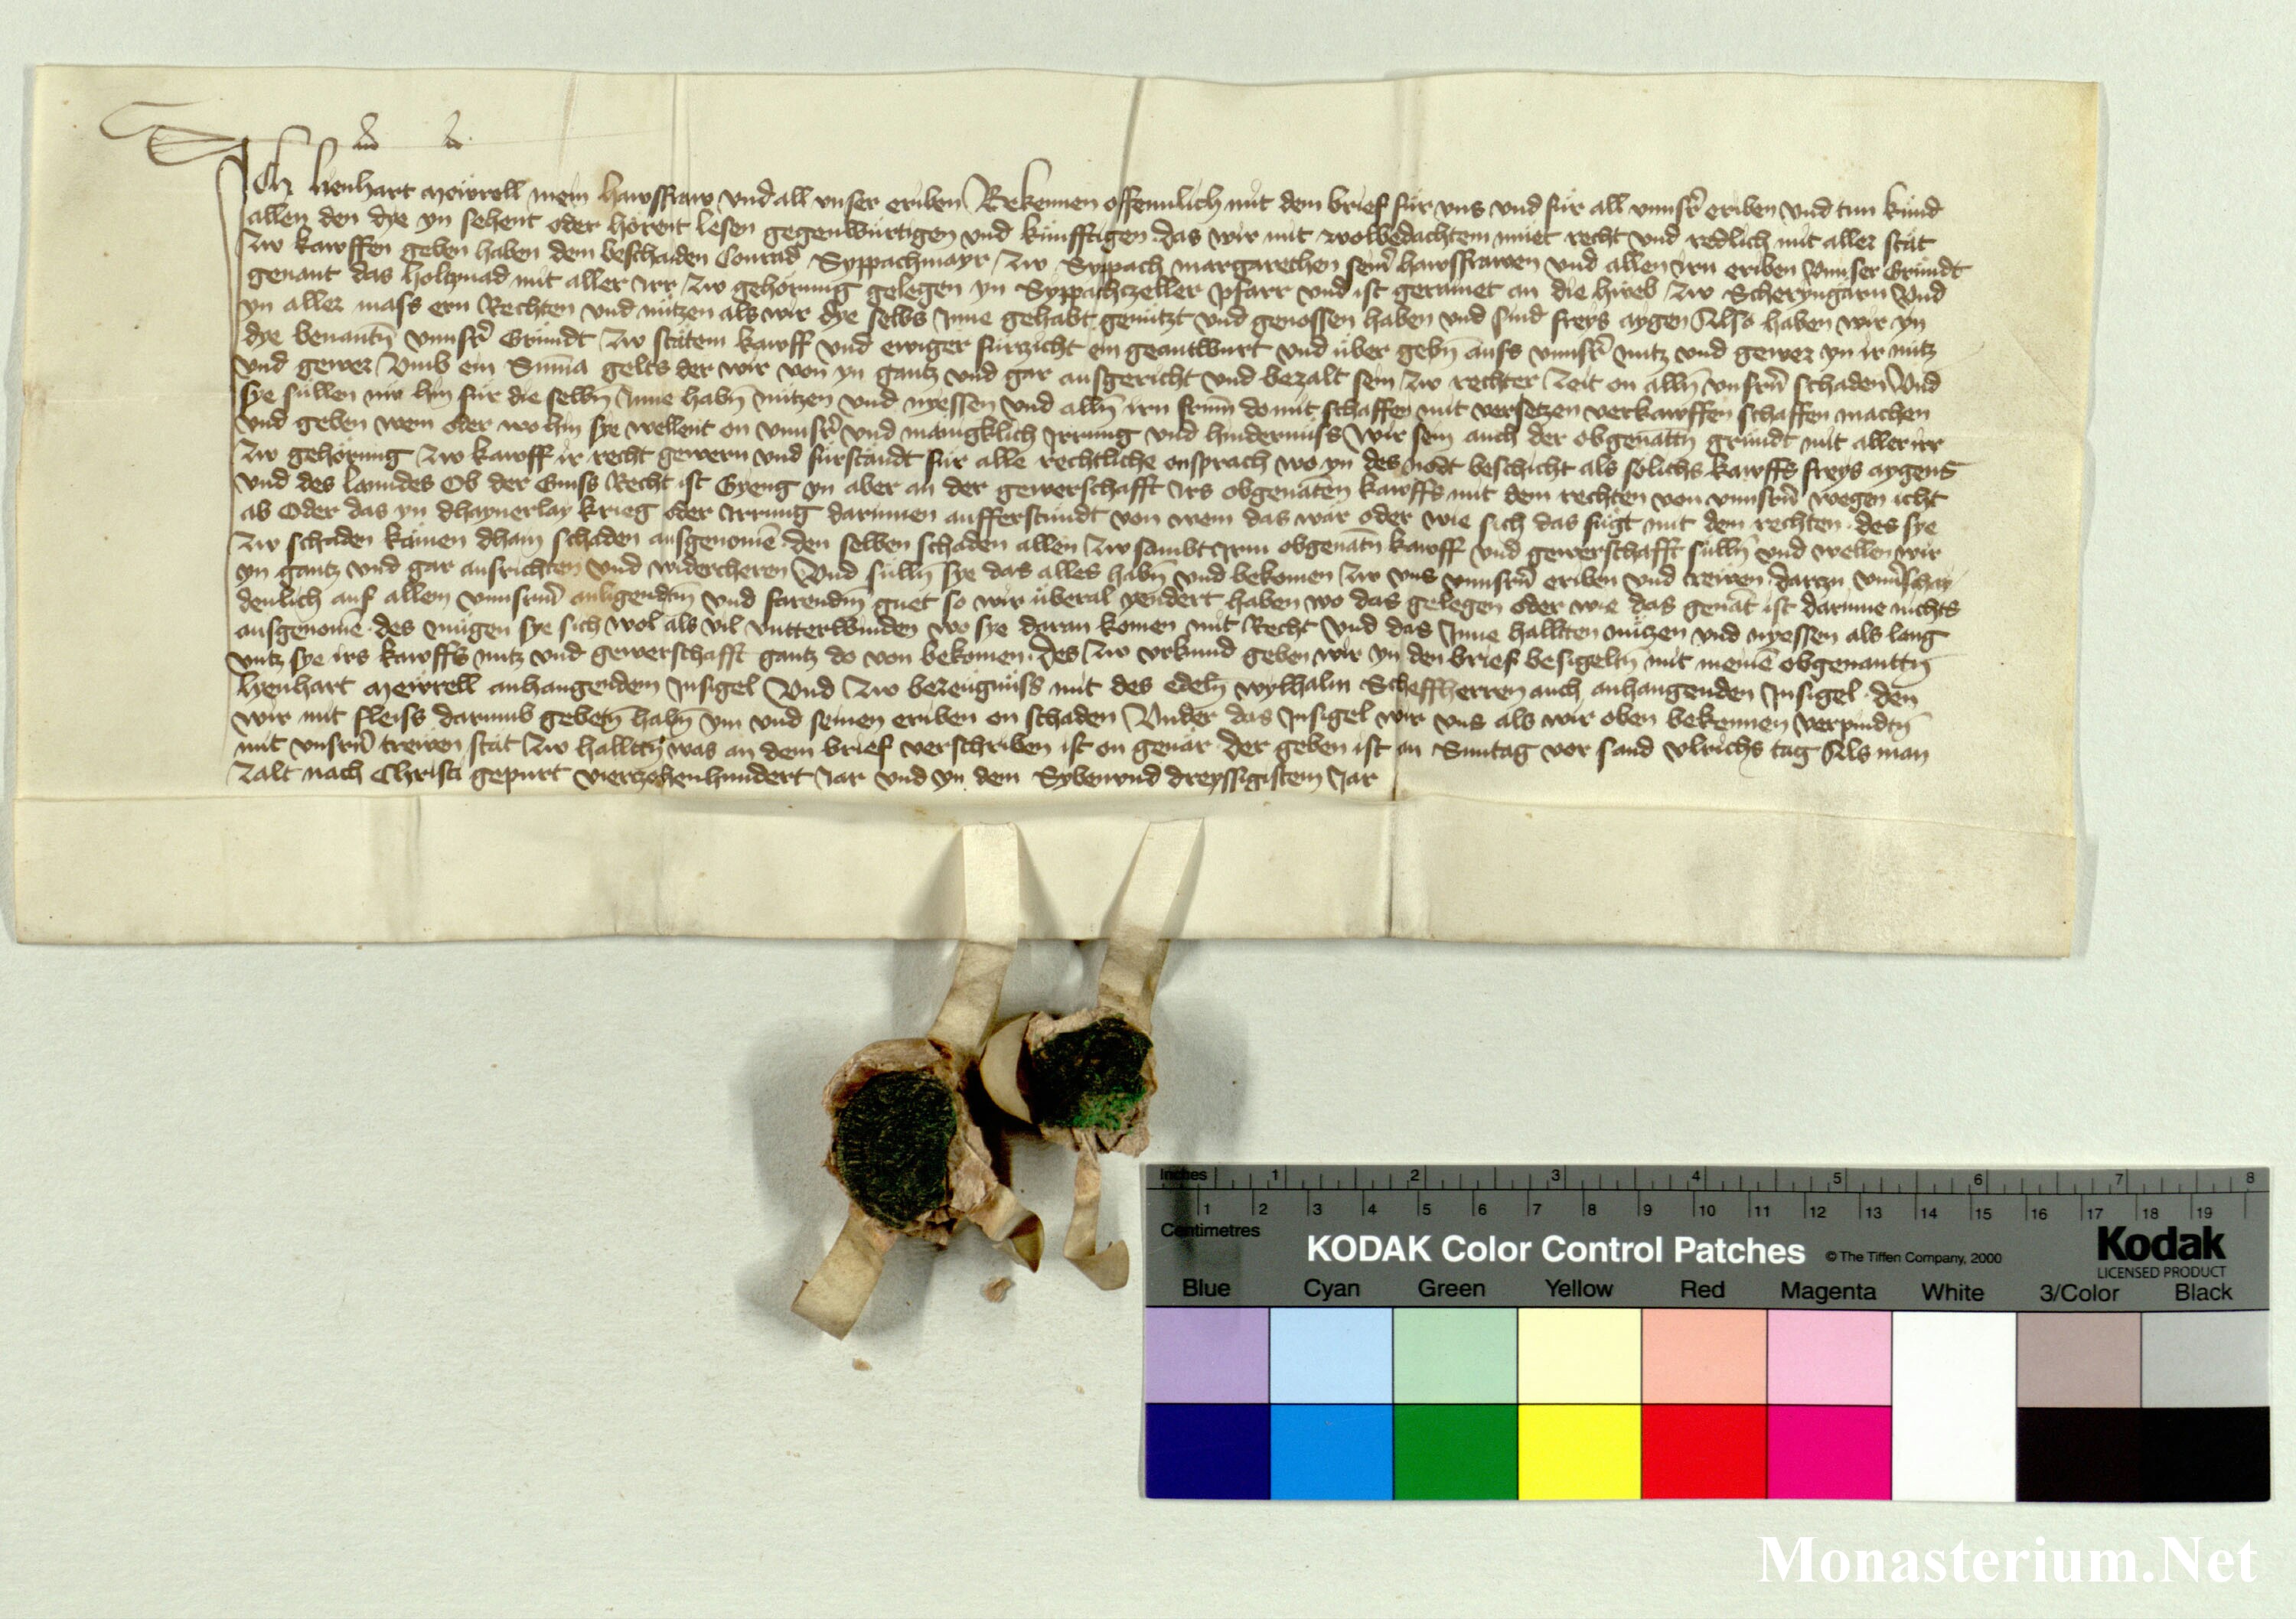 Ich Lienhart Mewrell mein hawsfraw vnd all vnser eriben Bekennen offennlich mit dem brief für vns vnd für all vnnsr̄ eriben vnd tun kund
allen den dye yn sehent oder hörent lesen gegenwürtigen vnd künfftigen das wir mit wolbedachtem müet recht vnd redlich mit aller stät
zw kawffen geben haben dem beschaiden Conrad Syppachmayr zw Syppach margarethen sein̄ hawsfrawen vnd allen irn eriben vnnser Gründt
genant das holtzmad mit aller irr zw gehörung gelegen yn Syppachzeller pfarr vnd ist geramet an die hueb zw Scheryngärn Vnd
yn aller mass ern Rechten vnd nützen als wir dye selbs Inne gehabt genützt vnd genossen haben vnd sind freys aygen Also haben wir yn
dye benantn̄ vnnsr̄ Gründt zw stätem kawff vnd ewiger fürzicht ein geantwurt vnd über gebn̄ auss vnnsr̄ nutz vnd gewer yn ir nutz
vnd gewer Vmb ein Sum̄a gelts der wir von yn gantz vnd gar ausgericht vnd bezalt sein zw rechter zeit on alln̄ vnsrn̄ schaden Vnd
sye süllen nw hin für die selbn̄ Inne habn̄ nützen vnd nyessen vnd alln̄ irn frum̄ do mit schaffen mit versetzen verkawffen schaffen machen
vnd geben wem oder wo hin sye wellent on vnnsr̄ vnd mänigklich Irrung vnd hindernüss Wir sein auch der obgenātn̄ gründt mit aller irr
zw gehörung zw kawff ir recht gewern vnd fürständt für alle rechtliche onsprach wo yn des nodt beschicht als sölichs kawffs freys aygens
vnd des lanndes Ob der Enns Recht ist Gyeng yn aber an der gewerschafft irs obgenāten kawffs mit dem rechten von vnnsrn̄ wegen icht
ab Oder das yn dhaynerlay krieg oder Irrung darinnen aufferstündt von wem das wär oder wie sich das fügt mit dem rechten des sye
zw schaden kämen dhain schaden ausgenomē den selben schaden allen zw sambt Irm obgenātn̄ kawff vnd gewerschafft sülln̄ vnd wellen wir
yn gantz vnd gar ausrichten vnd widercheren Vnd sülln̄ sye das alles habn̄ vnd bekomen zw vns vnnsrn̄ eriben vnd trewen darzu vnūschay
denlich auf allem vnnsrm̄ anligendm̄ vnd farendm̄ guet so wir überal yendert haben wo das gelegen oder wie das genāt ist darinne nichts
ausgenomē des mügen sye sich wol als vil vntterwinden wo sye daran komen mit Recht Vnd das Inne hallten nützen vnd nyessen als lang
vntz sye irs kawffs nutz vnd gewerschafft gantz do von bekomen Des zw vrkund geben wir yn den brief besigeltn̄ mit meinē obgenanttn̄
Lyenhart Mewrell anhangendem Insigel Vnd zw bezeugnüss mit des edeln̄ wylhalm Scheffherren auch anhangenden Insigel den
wir mit fleiss darumb gebetn̄ habn̄ ym vnd seinen eriben on schaden Vnder das Insigel wir vns als wir oben bekennen verpindtn̄
mit vnsrn̄ trewen stät zw halltn̄ was an dem brief verschriben ist on genär Der geben ist an Suntag vor sand vlrichs tag Als man
zalt nach Christi gepurt vierzehenhundert Jar vnd yn dem Sybenvnd dreyssigistem Jar
Inches 1 2 3 4 5 6 7 8
1 2 3 4 5 6 7 8 9 10 11 12 13 14 15 16 17 18 19
Centimetres
KODAK Color Control Patches © The Tiffen Company, 2000 Kodak
LICENSED PRODUCT
Blue Cyan Green Yellow Red Magenta White 3/Color Black
Monasterium.Net